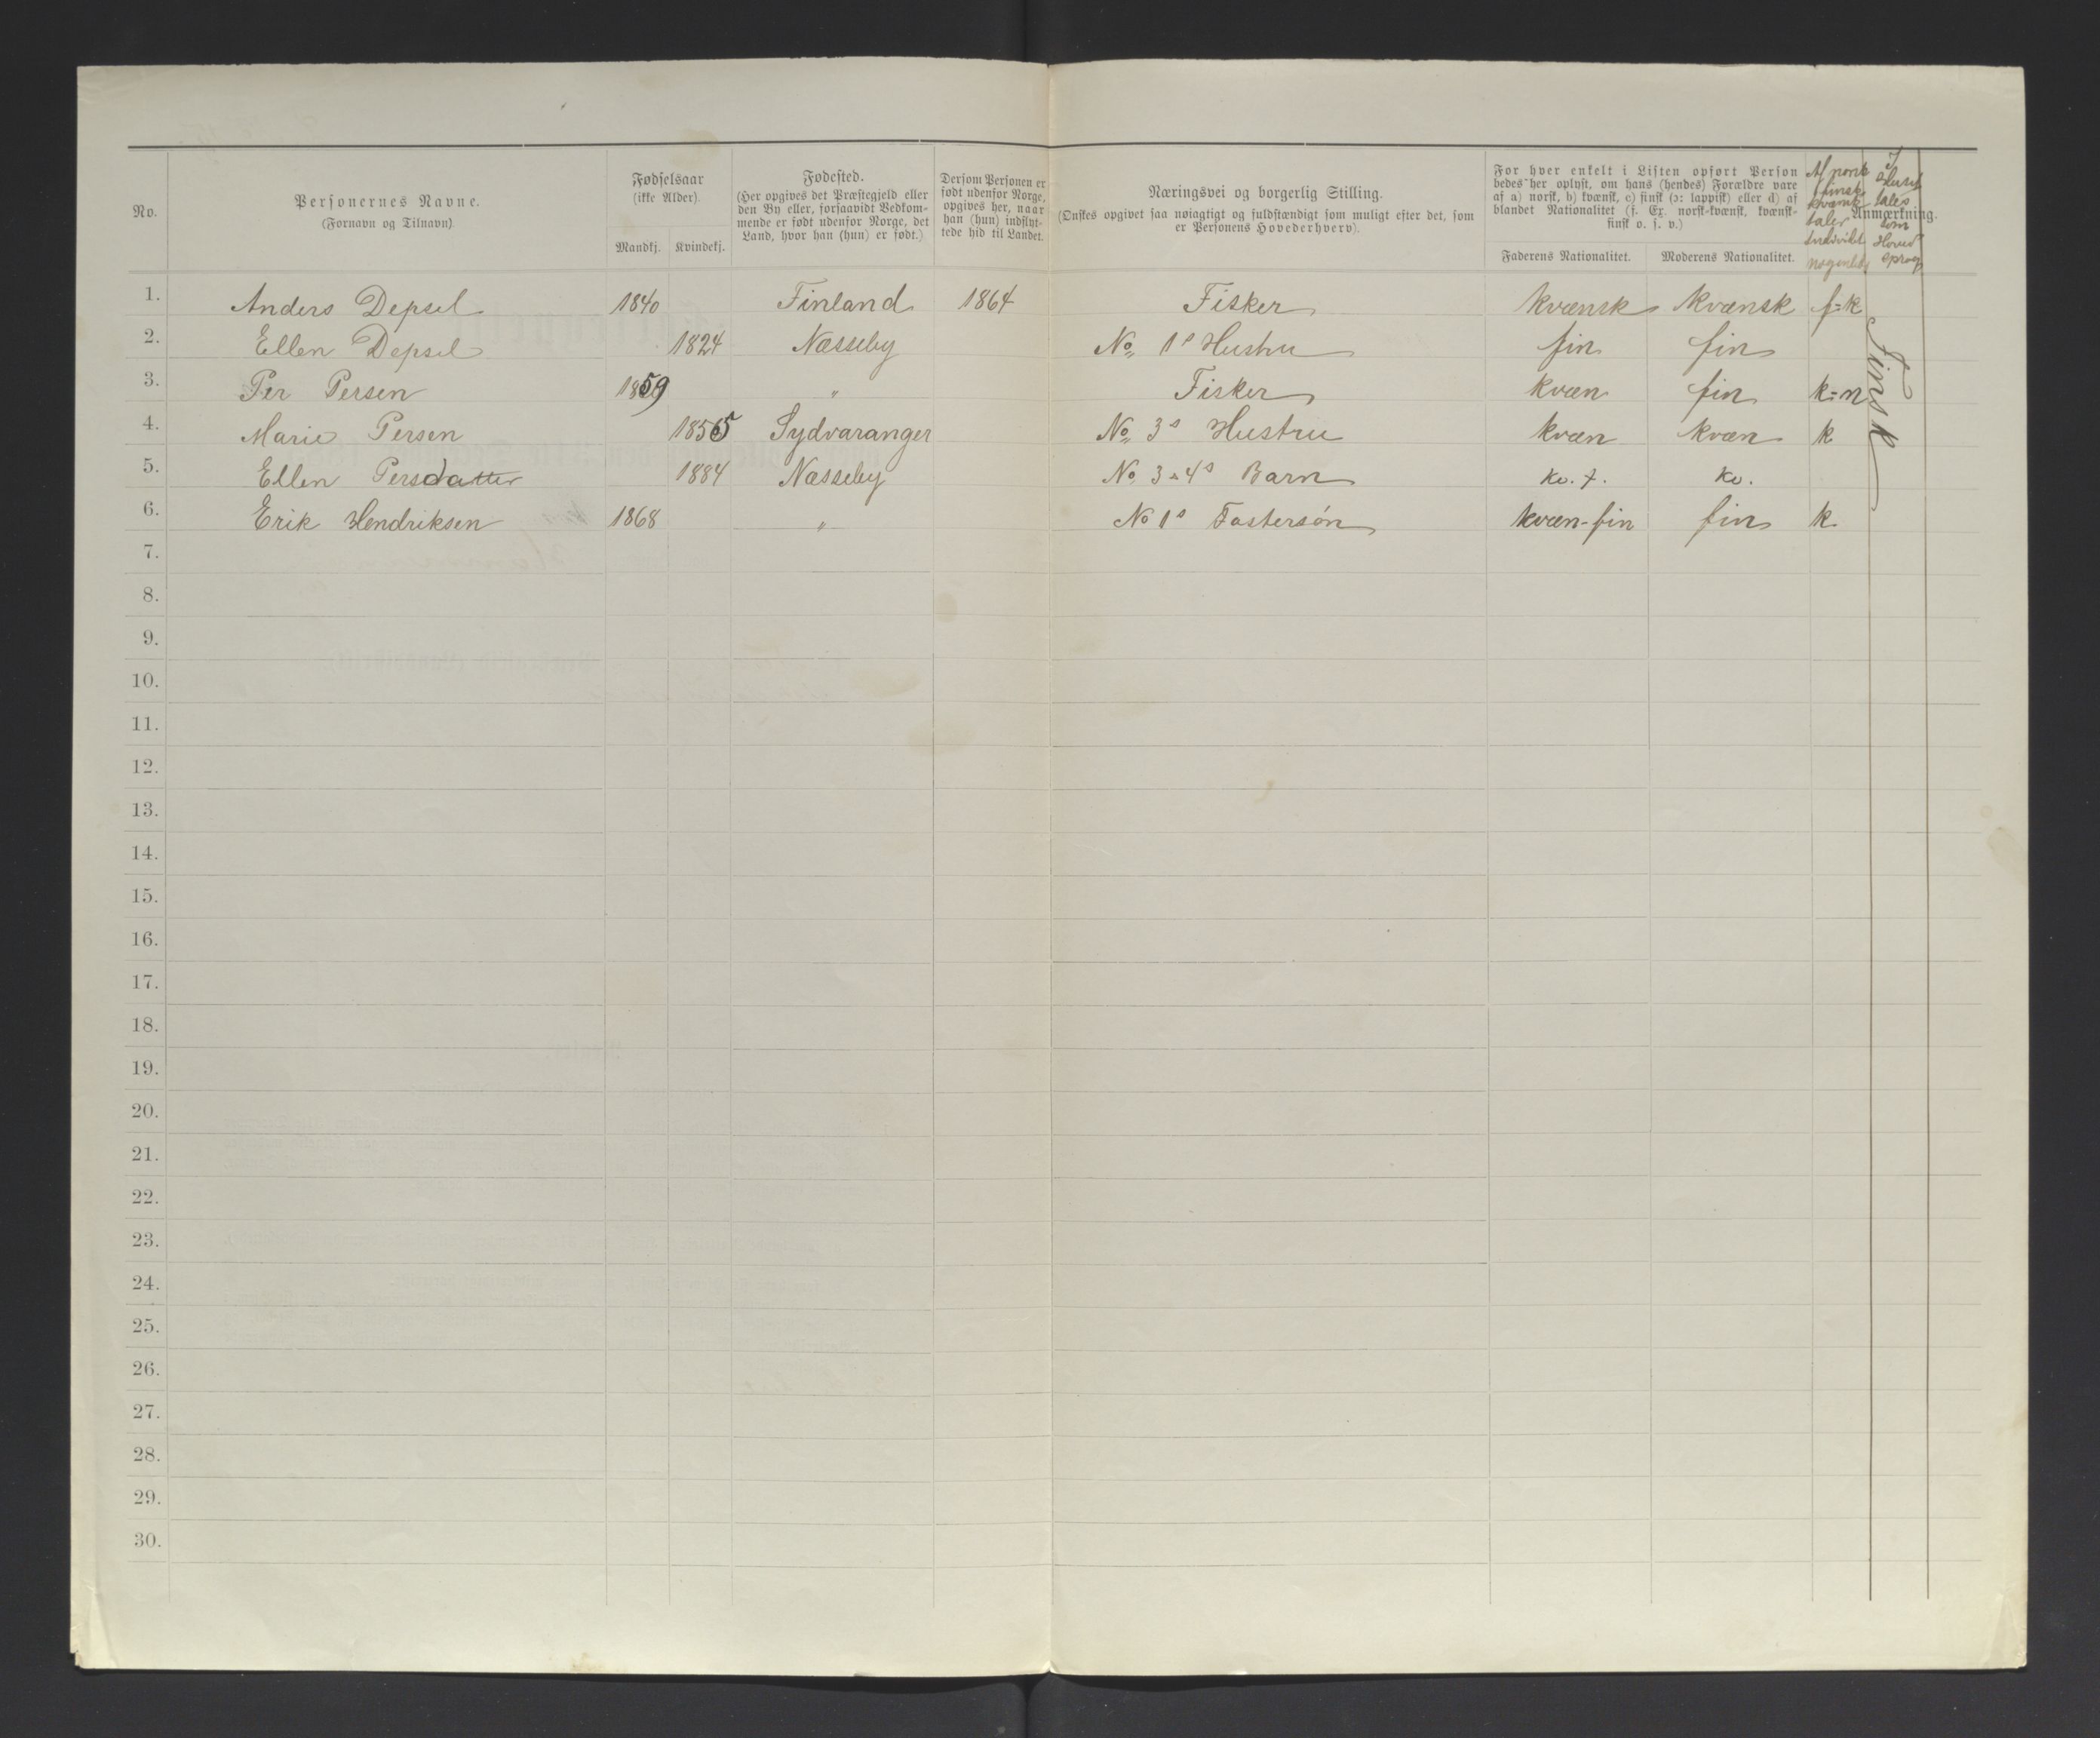 No.
Personernes Navne.
(Fornavn og Tilnavn).
Fødselsaar
(ikke Alder).
Mandkj. Kvindekj.
Fødested.
(Her opgives det Præstegjeld eller
den By eller, forsaavidt Vedkom-
mende er født udenfor Norge, det
Land, hvor han (hun) er født.)
Dersom Personen er
født udenfor Norge,
opgives her, naar
han (hun) indflyt-
tede hid til Landet.
Næringsvei og borgerlig Stilling.
(Ønskes opgivet saa nøiagtigt og fuldstændigt som muligt efter det, som
er Personens Hovederhverv).
For hver enkelt i Listen opført Person
bedes her oplyst, om hans (hendes) Forældre vare
af a) norsk, b) kvænsk, c) finsk (ɔ: lappisk) eller d) af
blandet Nationalitet (f. Ex. norsk-kvænsk, kvænsk-
finsk o. s. v.)
Faderens Nationalitet. Moderens Nationalitet.
Anmærkning.
Af norsk
finsk
kvænsk
taler
Individet
I
Huset
tales
som
Hoved
sprog
1. Anders Depsel 1840 Finland 1864 Fisker kvænsk kvænsk f=k
2. Ellen Depsel 1824 Næsseby No 1s Hustru fin fin
3. Per Persen 1859 " Fisker kvæn fin k=n
4. Marie Persen 1855 Sydvaranger No 3s Hustru kvæn kvæn k
5. Ellen Persdatter 1884 Næsseby No 3 & 4s Barn kv. f. kv.
6. Erik Hendriksen 1868 " No 1s Fostersøn kvæn-fin fin k
Finsk
7.
8.
9.
10.
11.
12.
13.
14.
15.
16.
17.
18.
19.
20.
21.
22.
23.
24.
25.
26.
27.
28.
29.
30.